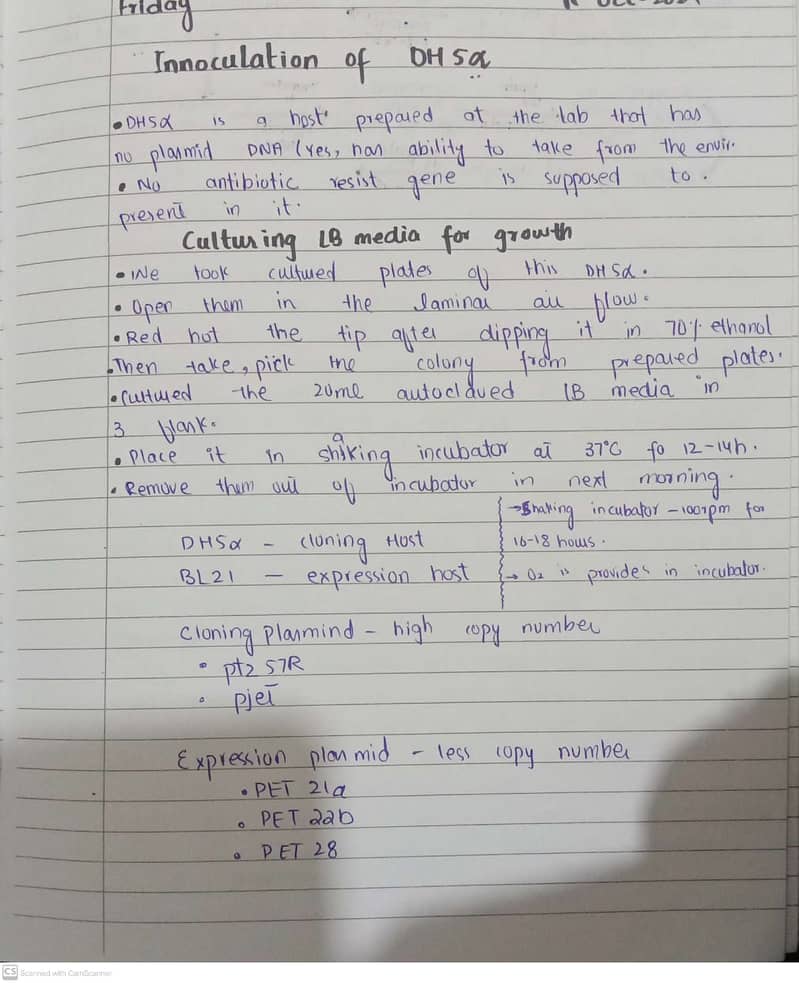 Friday
Innoculation of DH5α
• DH5α is a host prepared at the lab that has
no plasmid DNA (yes, has ability to take from the envir.
• No antibiotic resist gene is supposed to.
present in it.
Culturing LB media for growth
• We took cultured plates of this DH5α.
• Open them in the laminar air flow.
• Red hot the tip after dipping it in 70% ethanol
• Then take, pick the colony from prepared plates.
• Cultured the 20ml autoclaved LB media in
3 flask.
• Place it in shaking incubator at 37°C fo 12-14h.
• Remove them out of incubator in next morning.
→ Shaking incubator - 100rpm for
16-18 hours.
→ O2 is provides in incubator.
DH5α - cloning Host
BL21 - expression host
Cloning Plasmind - high copy number
• ptz 57R
• pjet
Expression plasmid - less copy number
• PET 21a
• PET 22b
• PET 28
CS Scanned with CamScanner